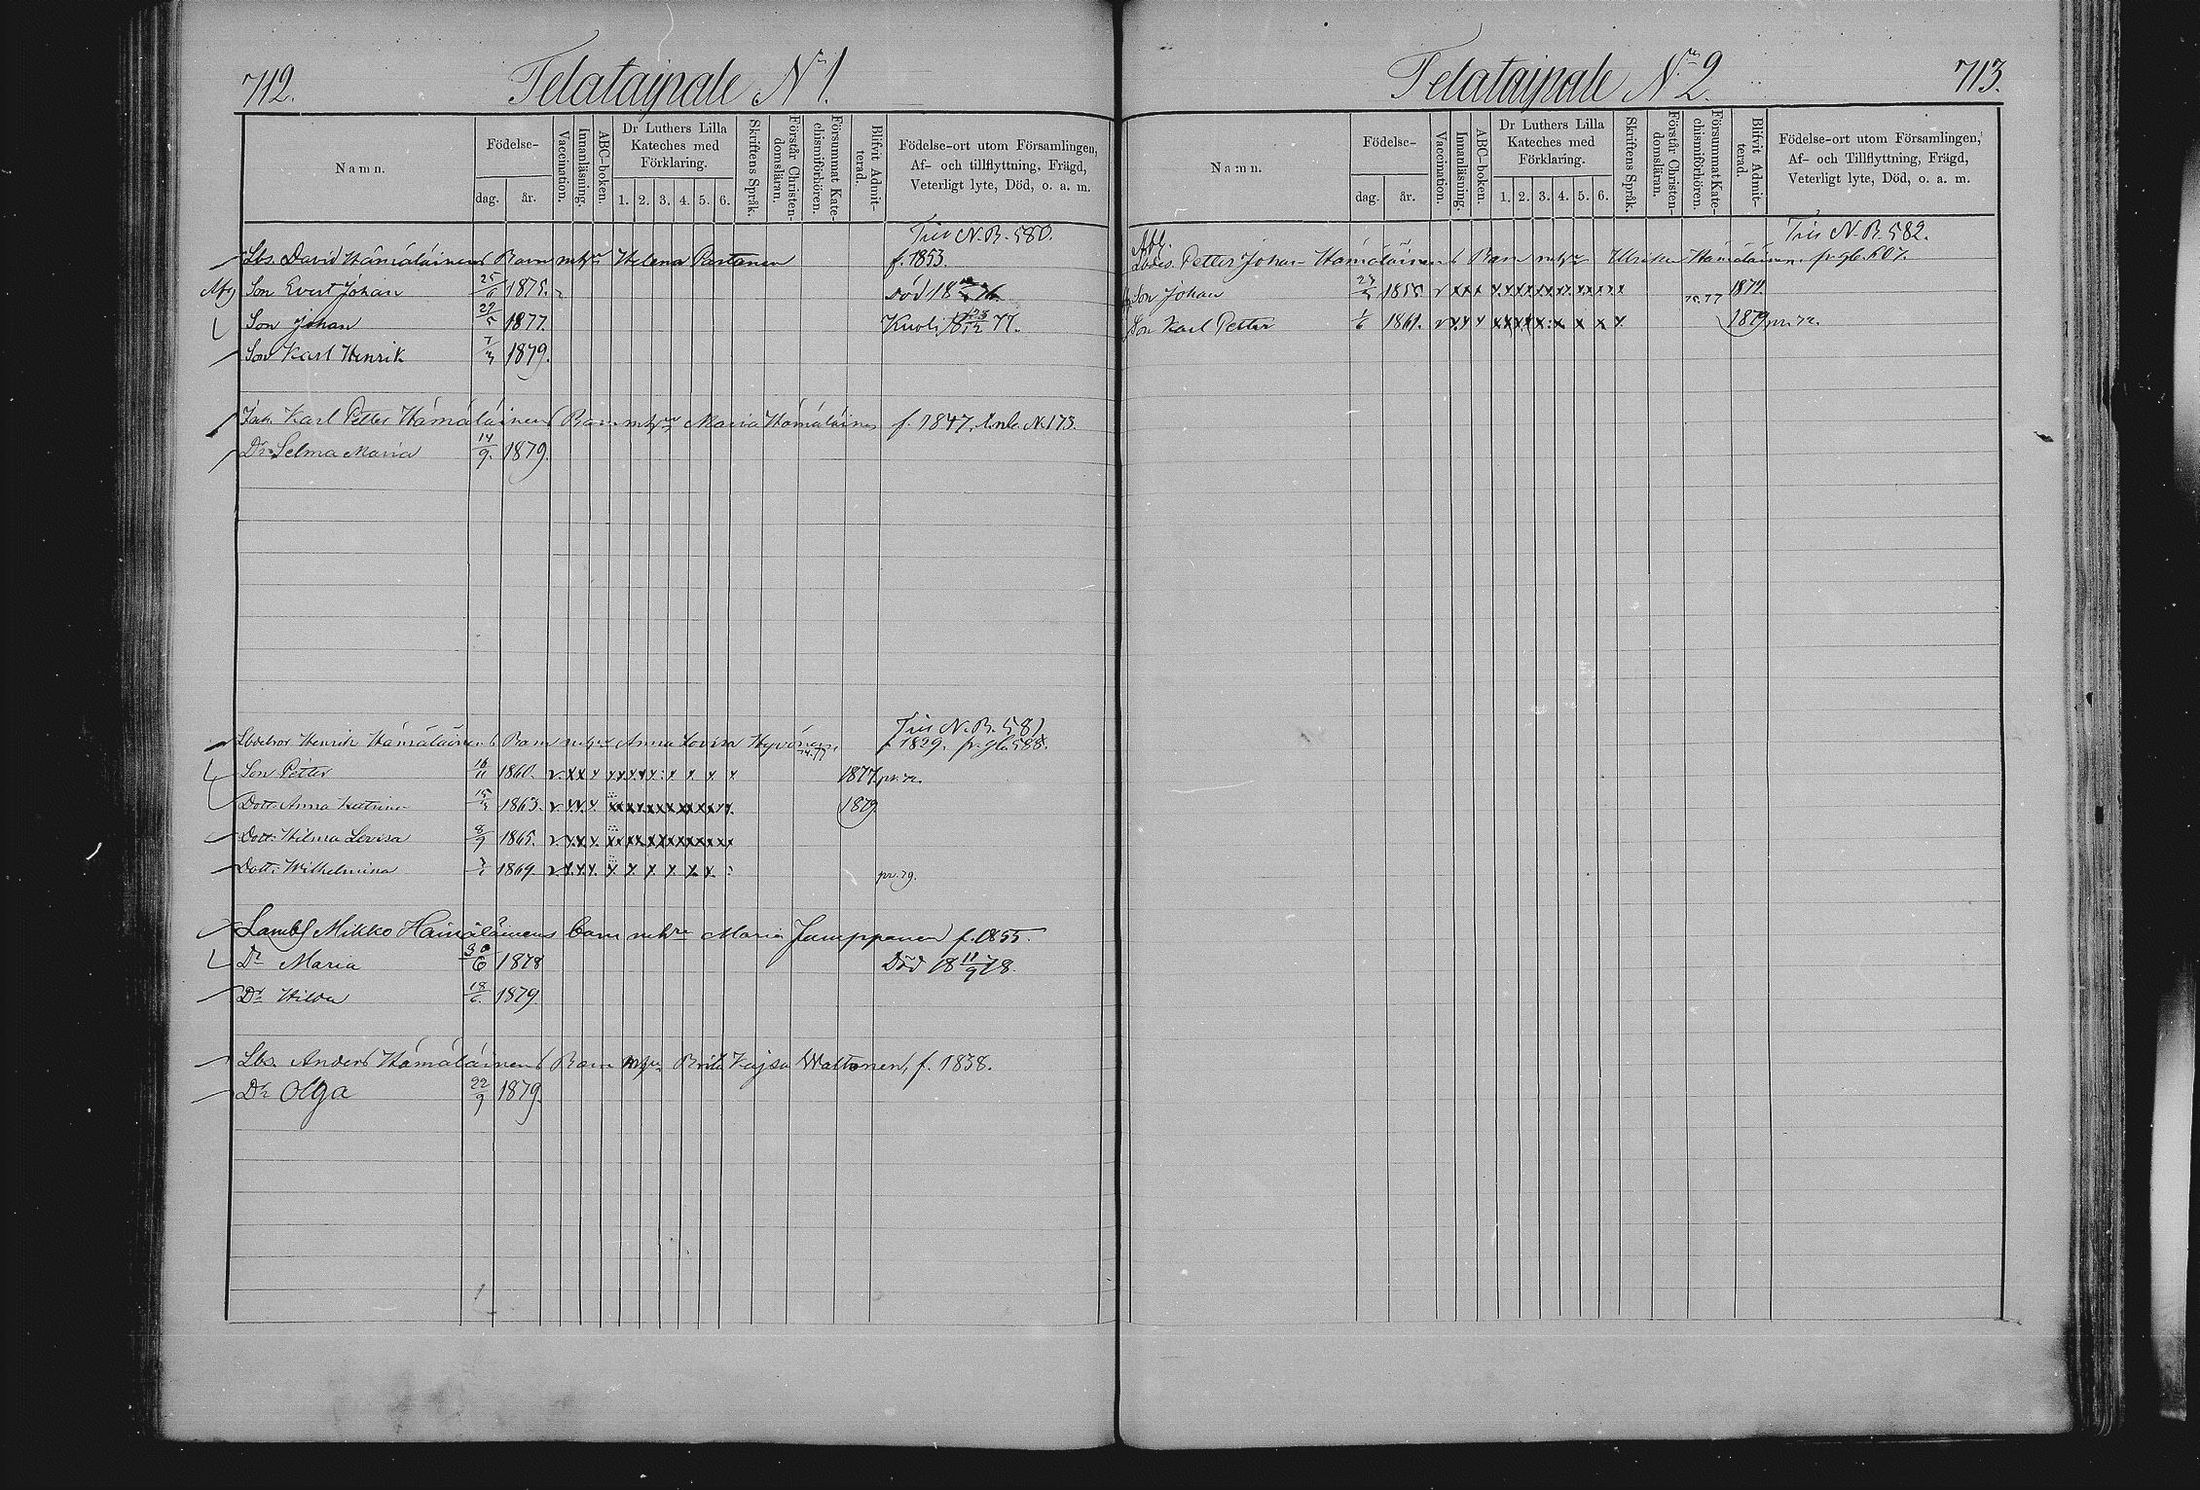 712.
Telataipale No 1.
Namn.
Födelse-
dag.
år.
Vaccination.
Innanläsning.
ABC-boken.
Dr Luthers Lilla
Kateches med
Förklaring.
1. 2. 3. 4. 5. 6.
Skriftens Språk.
Förstår Christen-
domsläran.
Försummat Kate-
chismiförhören.
Blifvit Admit-
terad.
Födelse-ort utom Församlingen,
Af- och tillflyttning, Frägd,
Veterligt lyte, Död, o. a. m.
N. B. 580.
Lbs. David Hämäläinens Barn Helena Partanen f. 1853.
Afg Son Evert Johan 25/6 1875. Död 18 76.
Son Johan 22/5 1877. Kuoli 18 23/12 77.
Son Karl Henrik 7/3 1879.
Karl Petter Hämäläinens Barn Maria Hämäläinen f. 1847. N. 173.
Dr Selma Maria 14/9. 1879.
N. B. 581
Henrik Hämäläinens Barn Anna Lovisa Hyvönen f. 1829. pr. gb. 588.
Son Petter 16/11 1860. v. x x x x x x x : x x x x 1877. pr. 72.
Dott. Anna Katrina 15/3 1863. v x x x x x x x x x x x x x 1879.
Dott. Hilma Lovisa 8/9 1865. v x x x x x x x x x x x x x
Dott. Wilhelmina 1869 v x x x x x x x x x pr. 79.
Lambs Mikko Hämäläinens barn Maria Jumppanen f. 1855.
Dr Maria 30/6 1878 Död 18 11/9 78.
Dr Hilda 18/6. 1879
Lbs. Anders Hämäläinens Barn Brita Kajsa Wattonen, f. 1838.
Dr Olga 22/9 1879.
713.
Telataipale No 2.
Namn.
Födelse-
dag.
år.
Vaccination.
Innanläsning.
ABC-boken.
Dr Luthers Lilla
Kateches med
Förklaring.
1. 2. 3. 4. 5. 6.
Skriftens Språk.
Förstår Christen-
domsläran.
Försummat Kate-
chismiförhören.
Blifvit Admit-
terad.
Födelse-ort utom Församlingen,
Af- och Tillflyttning, Frägd,
Veterligt lyte, Död, o. a. m.
N. B. 582.
Afg.
Petter Johan Hämäläinens Barn Ulrika Hämäläinen
Son Johan 1855 v x x x x x x x x x x x x x 75. 77 1879.
Son Karl Petter 1/6 1861. v x x x x x x x : x x x x 1879 pr. 72.